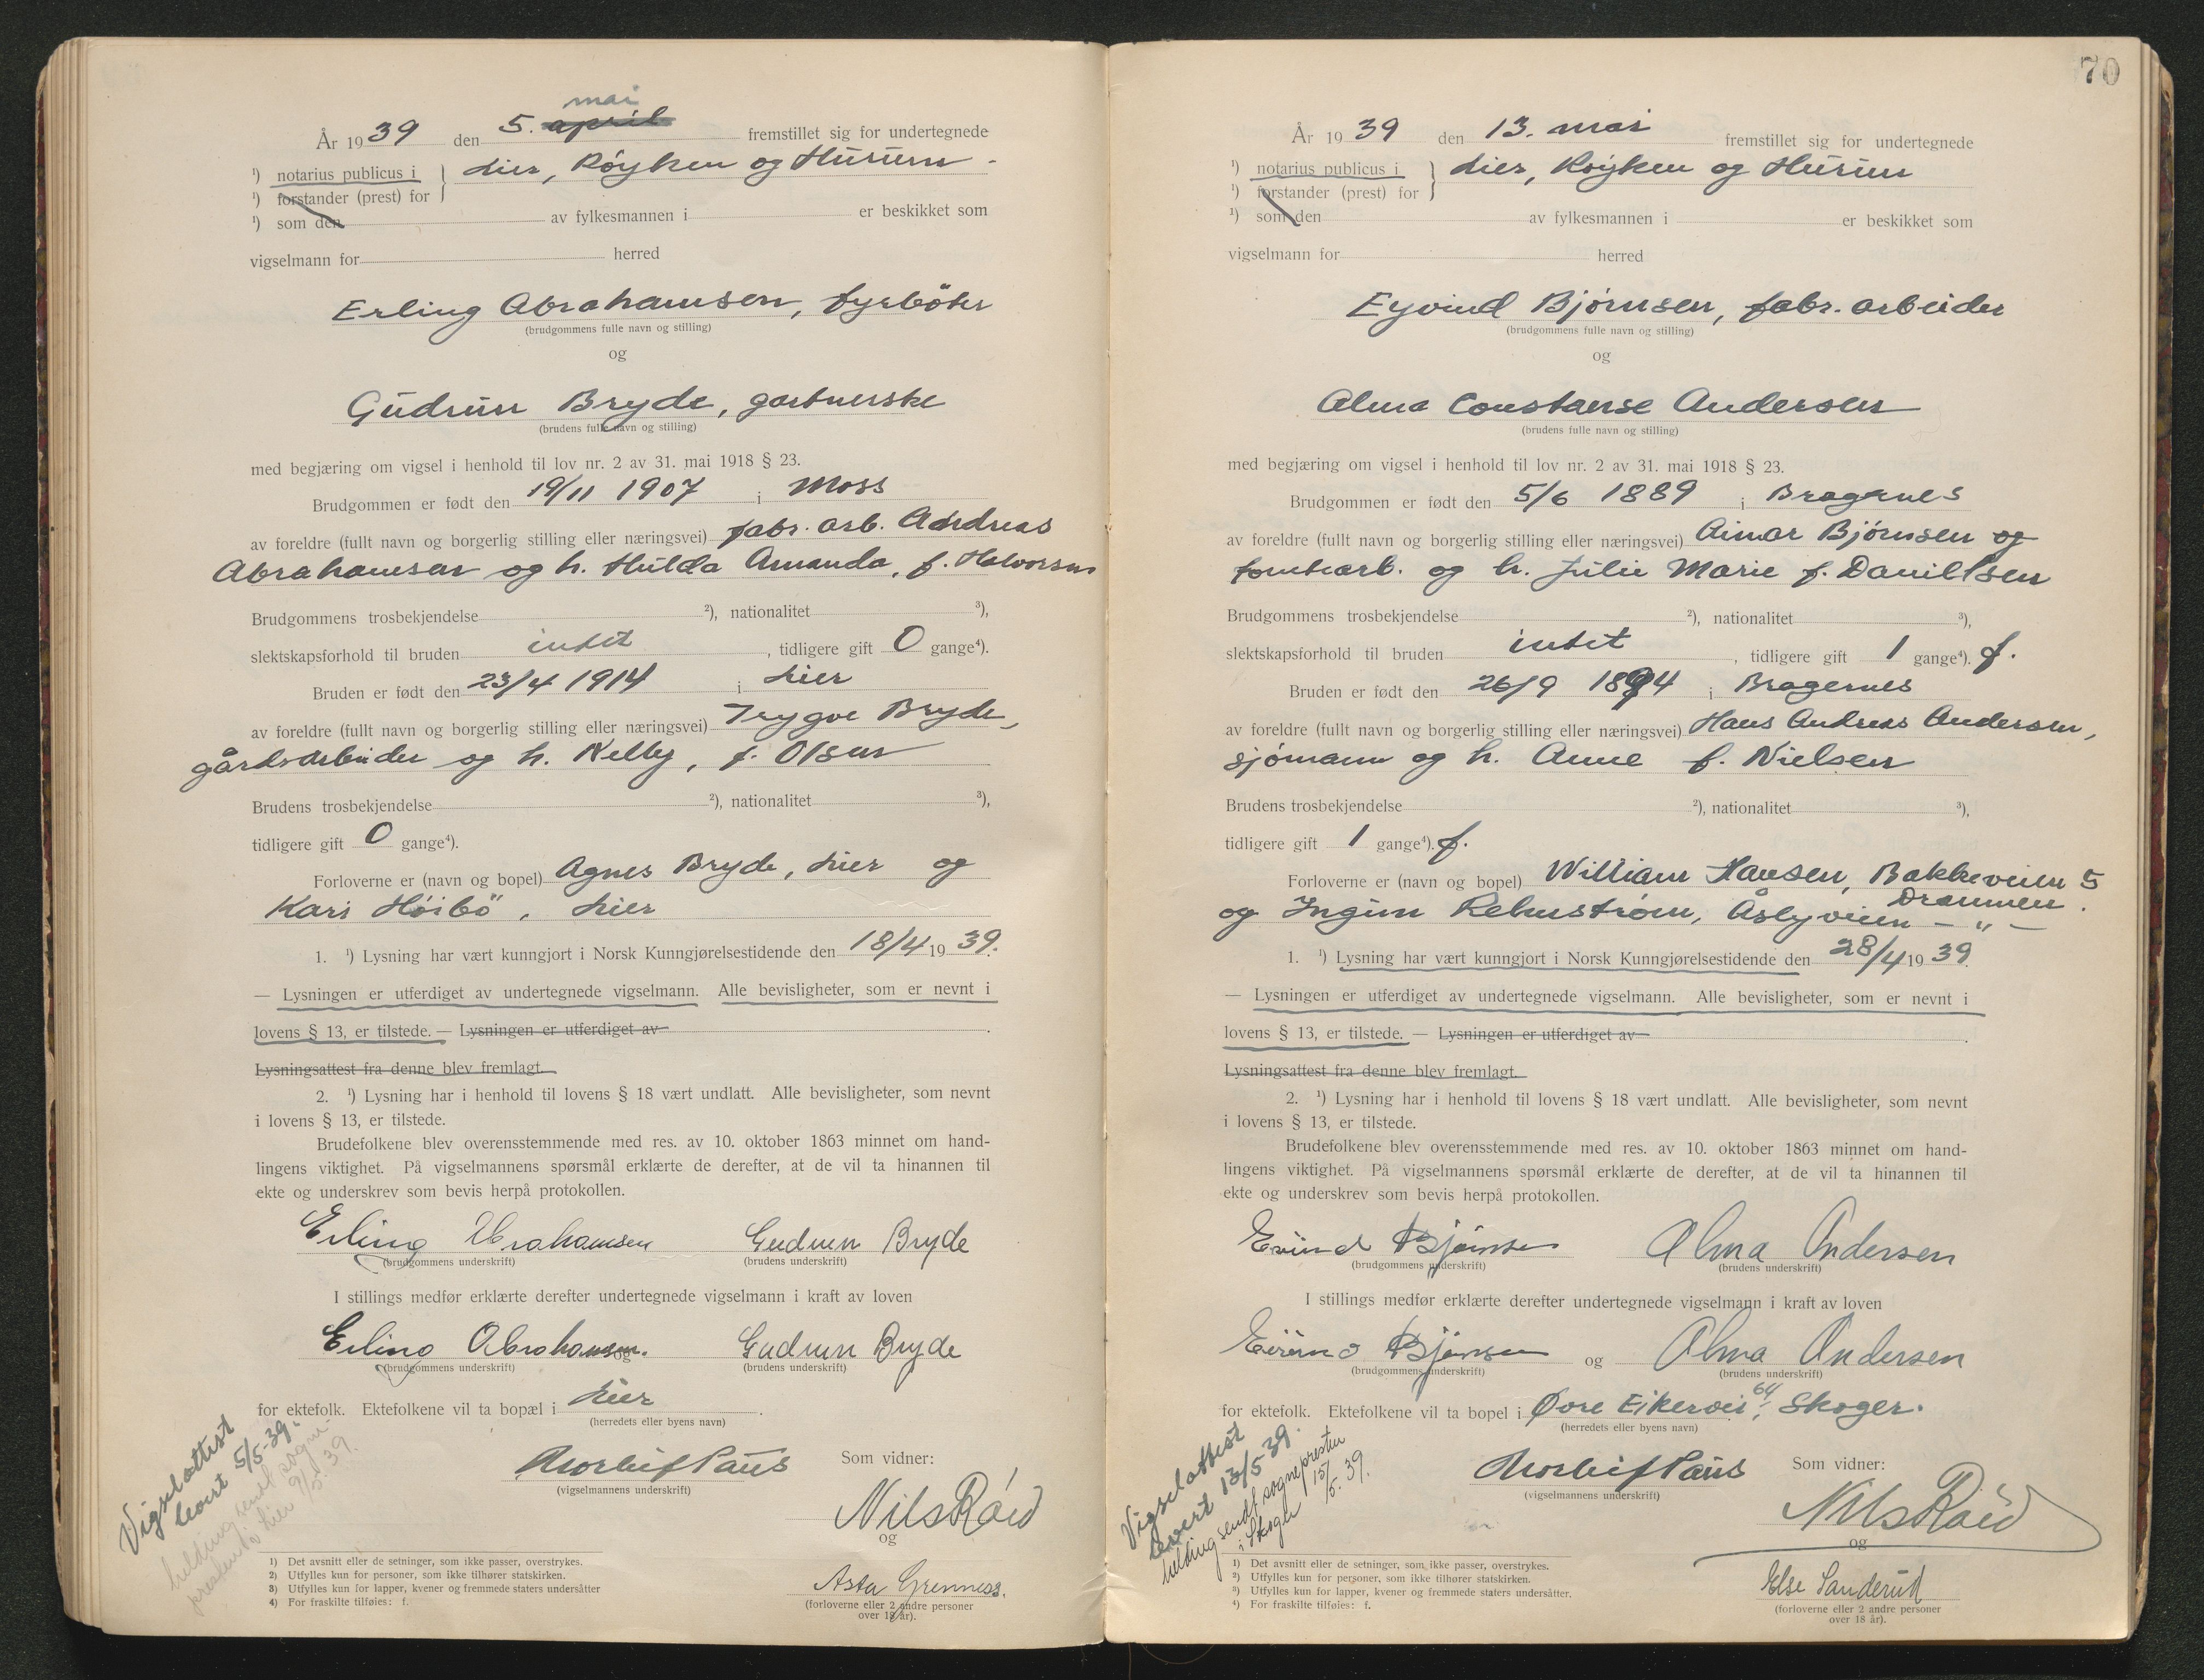 mai
År 1939 den 5. april fremstillet sig for undertegnede
¹) notarius publicus i } Lier, Røyken og Hurum.
¹) forstander (prest) for
¹) som den av fylkesmannen i er beskikket som
vigselmann for herred
Erling Abrahamsen, fyrbøter
(brudgommens fulle navn og stilling)
og
Gudrun Bryde, gartnerske
(brudens fulle navn og stilling)
med begjæring om vigsel i henhold til lov nr. 2 av 31. mai 1918 § 23.
Brudgommen er født den 19/11 1907 i Moss
av foreldre (fullt navn og borgerlig stilling eller næringsvei) fabr. arb. Andreas
Abrahamsen og h. Hulda Amanda, f. Halvorsen
Brudgommens trosbekjendelse ²), nationalitet ³),
slektskapsforhold til bruden intet, tidligere gift 0 gange⁴).
Bruden er født den 23/4 1914 i Lier
av foreldre (fullt navn og borgerlig stilling eller næringsvei) Trygve Bryde,
gårdsarbeider og h. Nelly, f. Olsen
Brudens trosbekjendelse ²), nationalitet ³),
tidligere gift 0 gange⁴).
Forloverne er (navn og bopel) Agnes Bryde, Lier og
Kari Høibö, Lier
1. ¹) Lysning har vært kunngjort i Norsk Kunngjørelsestidende den 18/4 1939.
— Lysningen er utferdiget av undertegnede vigselmann. Alle bevisligheter, som er nevnt i
lovens § 13, er tilstede. — Lysningen er utferdiget av
Lysningsattest fra denne blev fremlagt.
2. ¹) Lysning har i henhold til lovens § 18 vært undlatt. Alle bevisligheter, som nevnt
i lovens § 13, er tilstede.
Brudefolkene blev overensstemmende med res. av 10. oktober 1863 minnet om hand-
lingens viktighet. På vigselmannens spørsmål erklærte de derefter, at de vil ta hinannen til
ekte og underskrev som bevis herpå protokollen.
Erling Abrahamsen Gudrun Bryde
(brudgommens underskrift) (brudens underskrift)
I stillings medfør erklærte derefter undertegnede vigselmann i kraft av loven
Erling Abrahamsen. og Gudrun Bryde
(brudgommens underskrift) (brudens underskrift)
for ektefolk. Ektefolkene vil ta bopæl i Lier.
(herredets eller byens navn)
Thorleif Paus Som vidner:
(vigselmannens underskrift)
Nils Röed
og
Asta Grenness.
(forloverne eller 2 andre personer
over 18 år).
Vigselattest
levert 5/5-39.
melding sendt sogne-
presten i Lier 9/5. 39.
1) Det avsnitt eller de setninger, som ikke passer, overstrykes.
2) Utfylles kun for personer, som ikke tilhører statskirken.
3) Utfylles kun for lapper, kvener og fremmede staters undersåtter
4) For fraskilte tilføies: f.
70
År 1939 den 13. mai fremstillet sig for undertegnede
¹) notarius publicus i } Lier, Røyken og Hurum
¹) forstander (prest) for
¹) som den av fylkesmannen i er beskikket som
vigselmann for herred
Eyvind Bjørnsen, fabr. arbeider
(brudgommens fulle navn og stilling)
og
Alma Constanse Andersen
(brudens fulle navn og stilling)
med begjæring om vigsel i henhold til lov nr. 2 av 31. mai 1918 § 23.
Brudgommen er født den 5/6 1889 i Bragernes
av foreldre (fullt navn og borgerlig stilling eller næringsvei) Einar Bjørnsen og
tomtearb. og h. Julie Marie f. DaniElsen
Brudgommens trosbekjendelse ²), nationalitet ³),
slektskapsforhold til bruden intet, tidligere gift 1 gange⁴). f.
Bruden er født den 26/9 1894 i Bragernes
av foreldre (fullt navn og borgerlig stilling eller næringsvei) Hans Andreas Andersen,
sjømann og h. Anne f. Nielsen
Brudens trosbekjendelse ²), nationalitet ³),
tidligere gift 1 gange⁴). f.
Forloverne er (navn og bopel) William Hansen, Bakkeveien 5
Drammen.
og Ingun Åslyveien — " —
1. ¹) Lysning har vært kunngjort i Norsk Kunngjørelsestidende den 28/4 1939.
— Lysningen er utferdiget av undertegnede vigselmann. Alle bevisligheter, som er nevnt i
lovens § 13, er tilstede. — Lysningen er utferdiget av
Lysningsattest fra denne blev fremlagt.
2. ¹) Lysning har i henhold til lovens § 18 vært undlatt. Alle bevisligheter, som nevnt
i lovens § 13, er tilstede.
Brudefolkene blev overensstemmende med res. av 10. oktober 1863 minnet om hand-
lingens viktighet. På vigselmannens spørsmål erklærte de derefter, at de vil ta hinannen til
ekte og underskrev som bevis herpå protokollen.
Evind Bjørnsen Alma Andersen
(brudgommens underskrift) (brudens underskrift)
I stillings medfør erklærte derefter undertegnede vigselmann i kraft av loven
Eivind Bjørnsen og Alma Andersen
(brudgommens underskrift) (brudens underskrift)
for ektefolk. Ektefolkene vil ta bopel i Øvre Eikervei 64, Skoger.
(herredets eller byens navn)
Thorleif Paus Som vidner:
(vigselmannens underskrift)
Nils Röed
og
Else Sanderud
(forloverne eller 2 andre personer
over 18 år).
Vigselattest
levert 13/5-39.
melding sendt sognepresten
i Skoger 15/5. 39.
¹) Det avsnitt eller de setninger, som ikke passer, overstrykes.
²) Utfylles kun for personer, som ikke tilhører statskirken.
³) Utfylles kun for lapper, kvener og fremmede staters undersåtter.
⁴) For fraskilte tilføies: f.